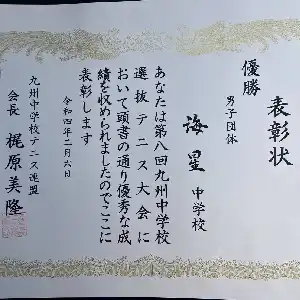 表彰状
優勝
男子団体
海星 中学校
あなたは第八回九州中学校
選抜テニス大会に
おいて頭書の通り優秀な成
績を収められましたのでここに
表彰します
令和四年二月六日
九州中学校テニス連盟
会長 梶原美隆